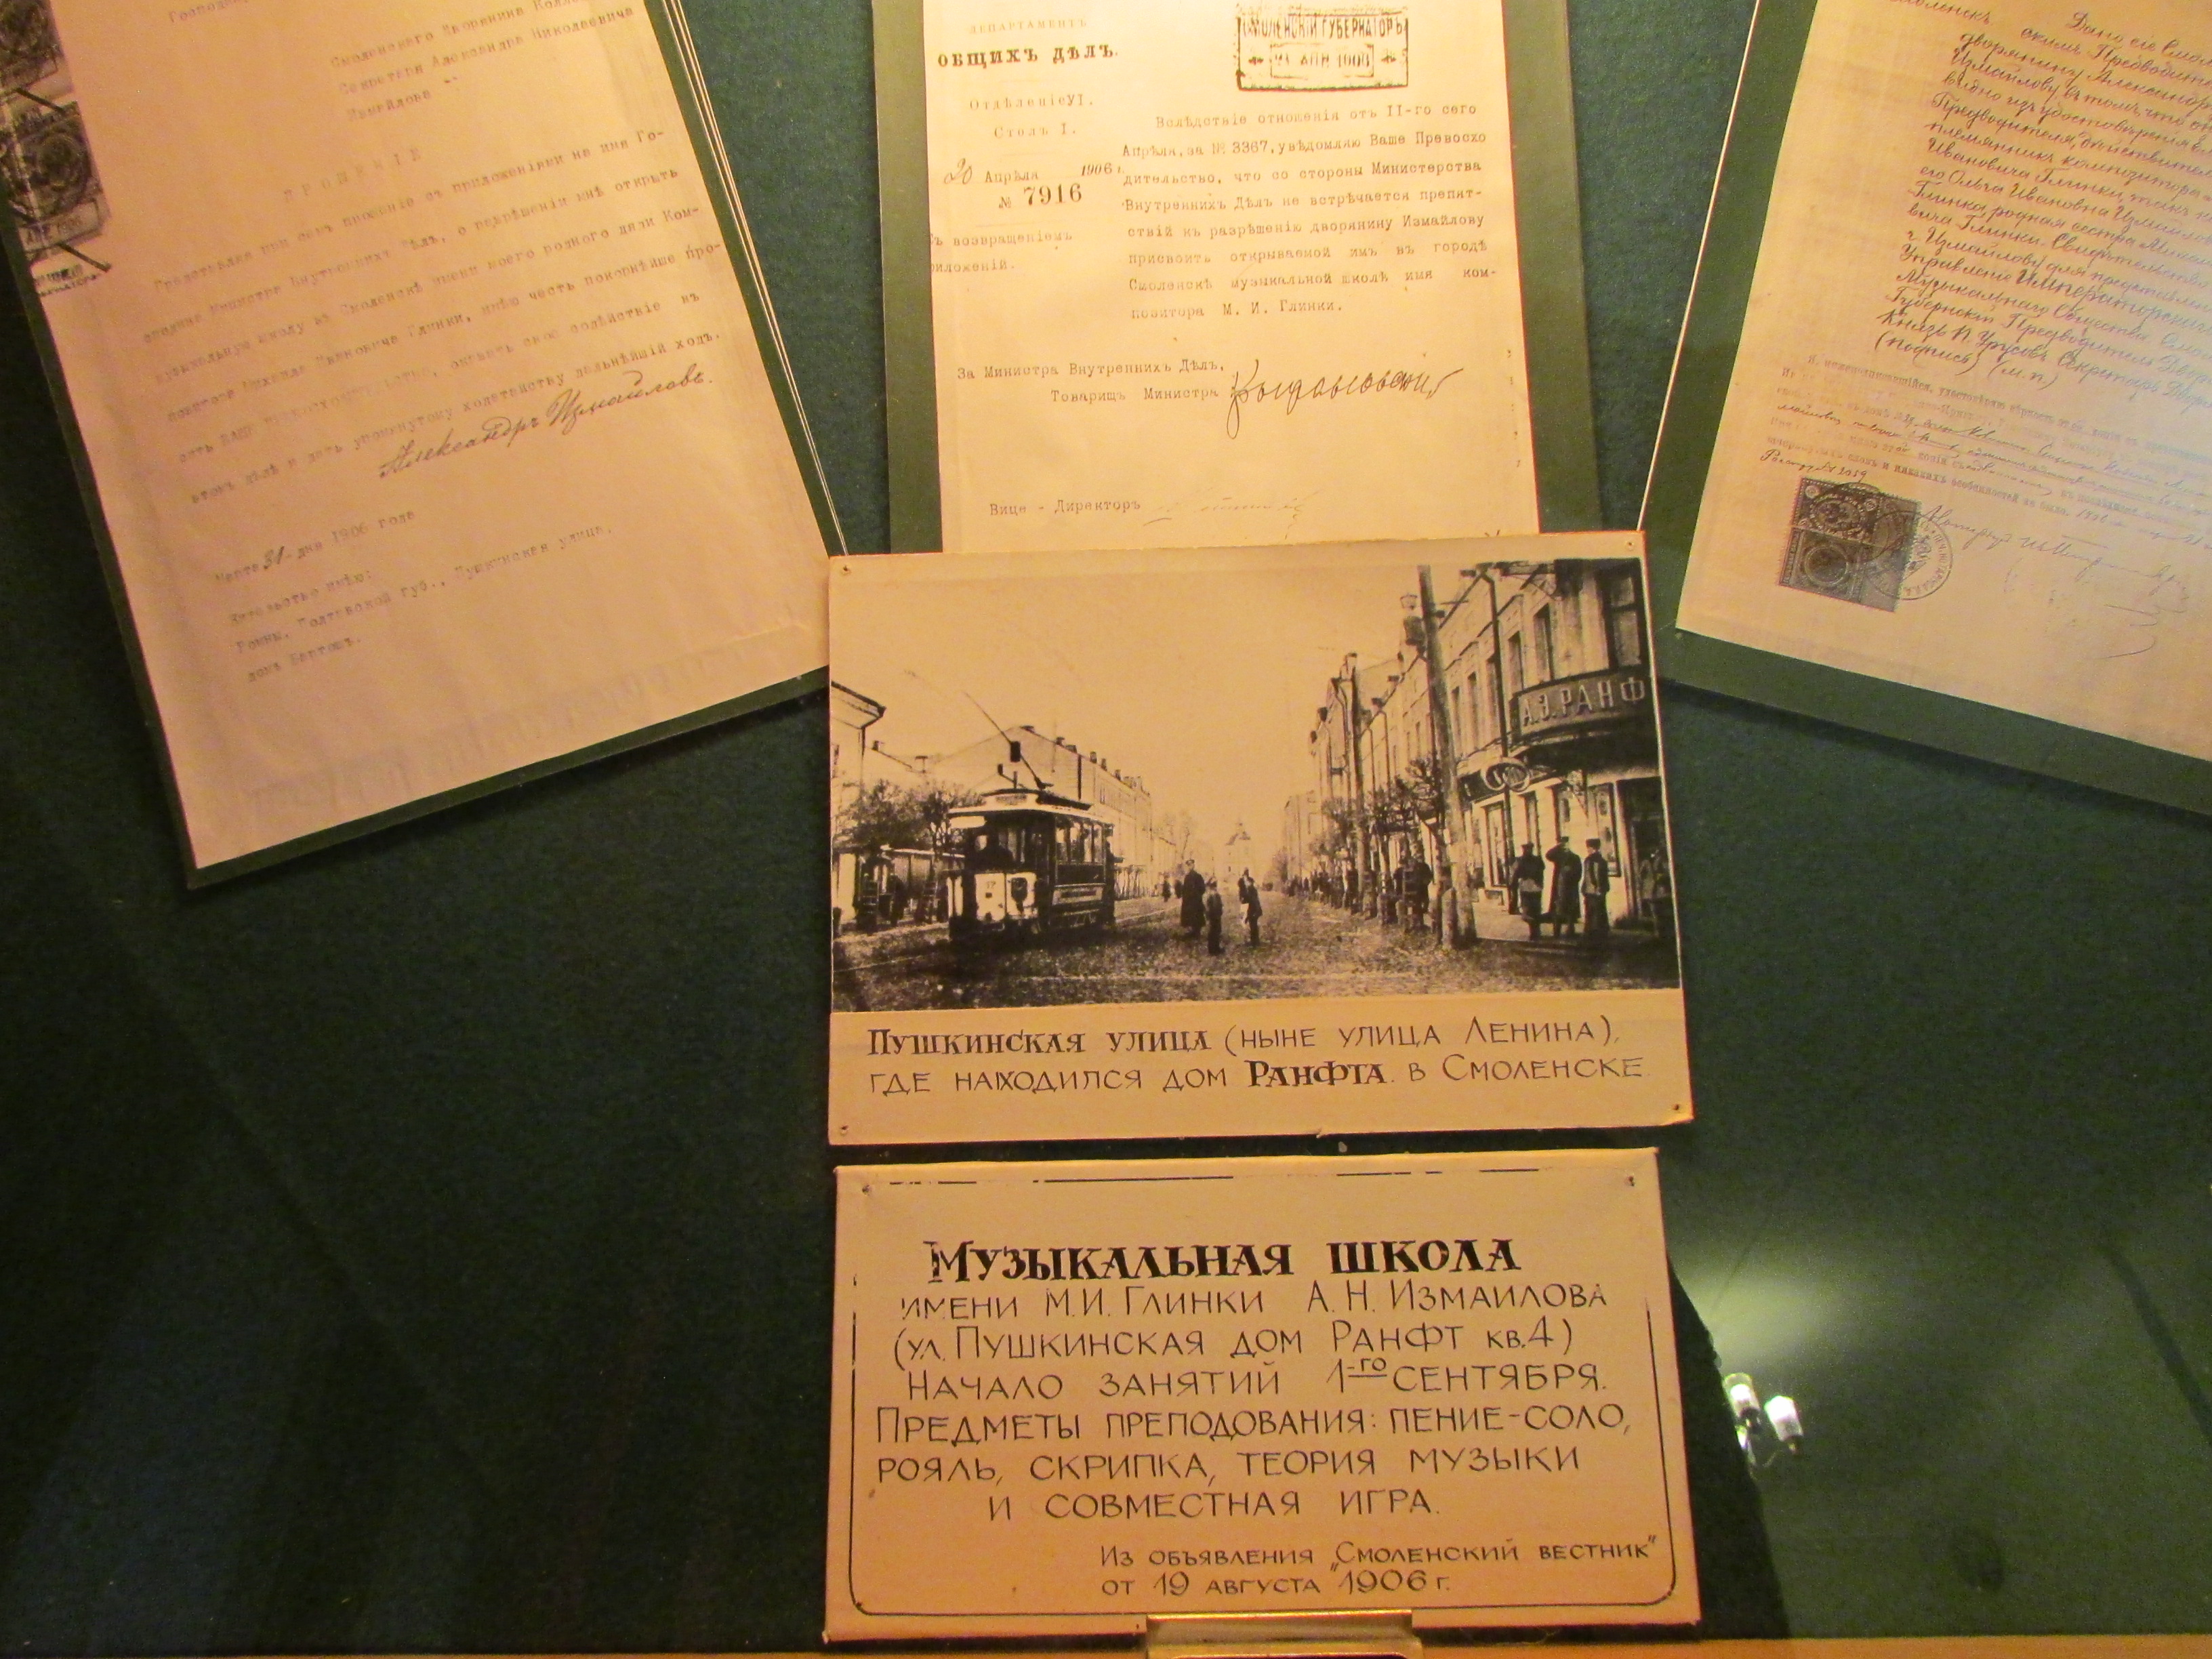 Господ
Смоленскаго Дворянина Колле
Секретаря Александра Николаевича
Измайлова
ПРОШЕНІЕ
Представляя при семъ прошеніе съ приложеніями на имя Го-
сподина Министра Внутреннихъ Дѣлъ, о разрѣшеніи мнѣ открыть
музыкальную школу въ Смоленскѣ имени моего родного дяди Ком-
позитора Михаила Ивановича Глинки, имѣю честь покорнѣйше про-
сить ВАШЕ Превосходительство, оказать свое содѣйствіе въ
этомъ дѣлѣ и дать упомянутому ходатайству дальнѣйшій ходъ.
Александръ Измайловъ.
Марта 31-дня 1906 года
Жительство имѣю:
Ромны, Полтавской губ., Пушкинская улица,
домъ
ДЕПАРТАМЕНТЪ
ОБЩИХЪ ДѢЛЪ.
Отдѣленіе VI.
Столъ I.
20 Апрѣля 1906 г.
№ 7916
Съ возвращеніемъ
приложеній.
СМОЛЕНСКІЙ ГУБЕРНАТОРЪ
АПР
Вслѣдствіе отношенія отъ II-го сего
Апрѣля, за № 3367, увѣдомляю Ваше Превосхо
дительство, что со стороны Министерства
Внутреннихъ Дѣлъ не встрѣчается препят-
ствій къ разрѣшенію дворянину Измайлову
присвоить открываемой имъ въ городѣ
Смоленскѣ музыкальной школѣ имя ком-
позитора М. И. Глинки.
За Министра Внутреннихъ Дѣлъ,
Товарищъ Министра
Вице - Директоръ
Дано сіе Смол
скимъ Предводите
дворянину Александр
Измайлову въ томъ, что он
видно изъ удостовѣренія
Предводителя, дѣйствител
племянникъ композитора
Ивановича Глинки, такъ к
его Ольга Ивановна Измайло
Глинка родная сестра Михаи
вича Глинки. Свидѣтельство
г. Измайлову для представлен
Управленію Императорскаго
Музыкальнаго Общества. Смол
Губернскій Предводитель Дворя
Князь В. Урусовъ Секретарь Дворя
(подпись) (м.п.)
А.Э.РАНФ
ПУШКИНСКАЯ УЛИЦА (НЫНЕ УЛИЦА ЛЕНИНА),
ГДЕ НАХОДИЛСЯ ДОМ РАНФТА В СМОЛЕНСКЕ.
МУЗЫКАЛЬНАЯ ШКОЛА
ИМЕНИ М.И. ГЛИНКИ А.Н. ИЗМАИЛОВА
(УЛ. ПУШКИНСКАЯ ДОМ РАНФТ КВ.4)
НАЧАЛО ЗАНЯТИЙ 1-ГО СЕНТЯБРЯ.
ПРЕДМЕТЫ ПРЕПОДОВАНИЯ: ПЕНИЕ-СОЛО,
РОЯЛЬ, СКРИПКА, ТЕОРИЯ МУЗЫКИ
И СОВМЕСТНАЯ ИГРА.
ИЗ ОБЪЯВЛЕНИЯ „СМОЛЕНСКИЙ ВЕСТНИК"
ОТ 19 АВГУСТА 1906 Г.